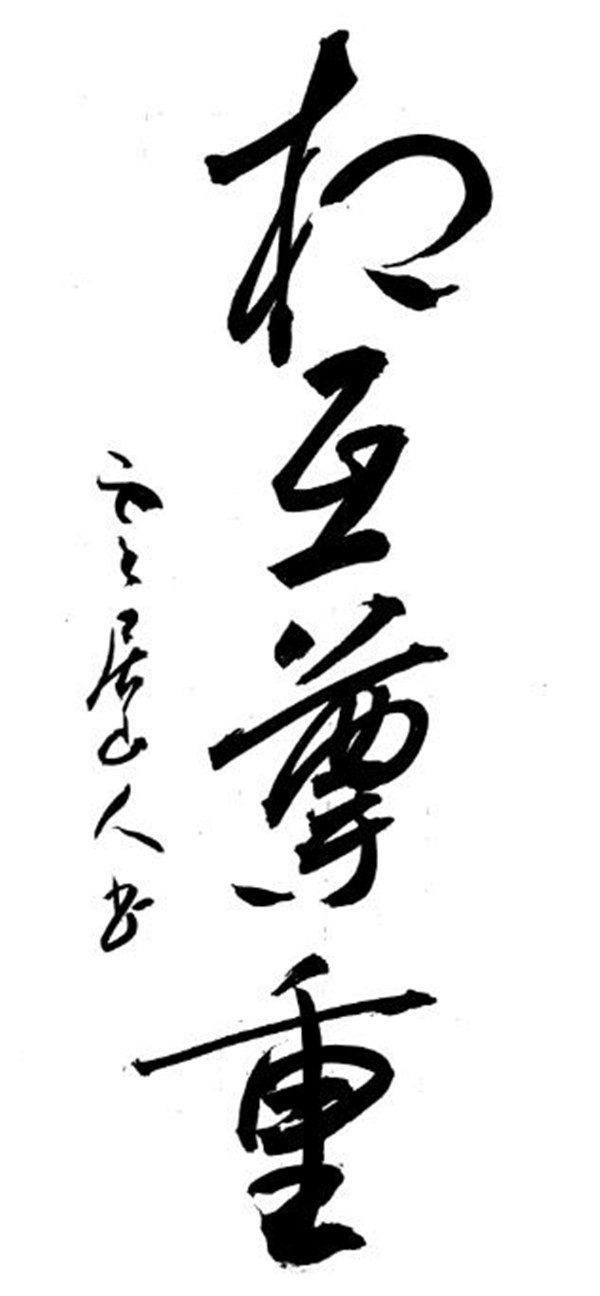 相互尊重
云居山人书